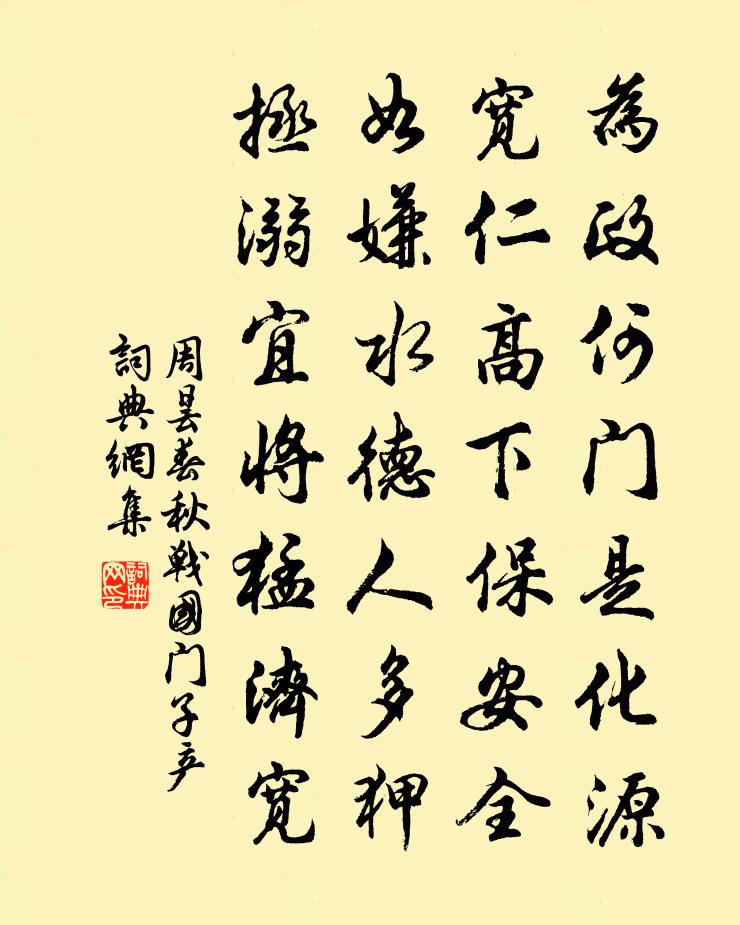 為政何门是化源
寬仁高下保安全
如嫌水德人多狎
拯溺宜将猛濟寬
周昙春秋戰國门子产
詞典網集
詞典网印